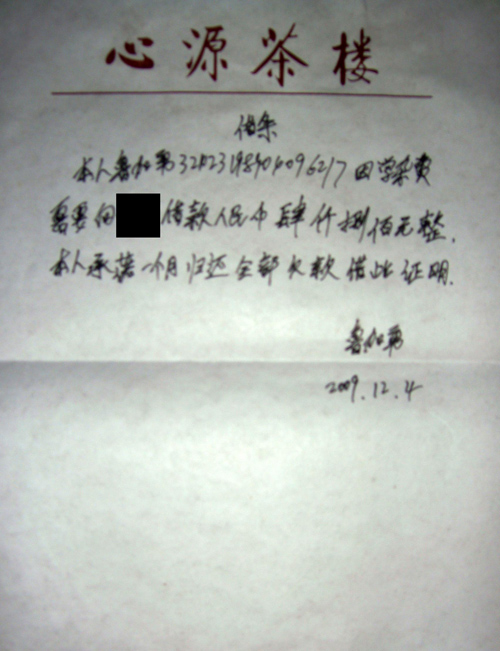 心源茶楼
借条
本人鲁如第 因学杂费
需要向 借款人民币肆仟捌佰元整.
本人承诺一个月归还全部欠款借此证明.
鲁如第
2009.12.4